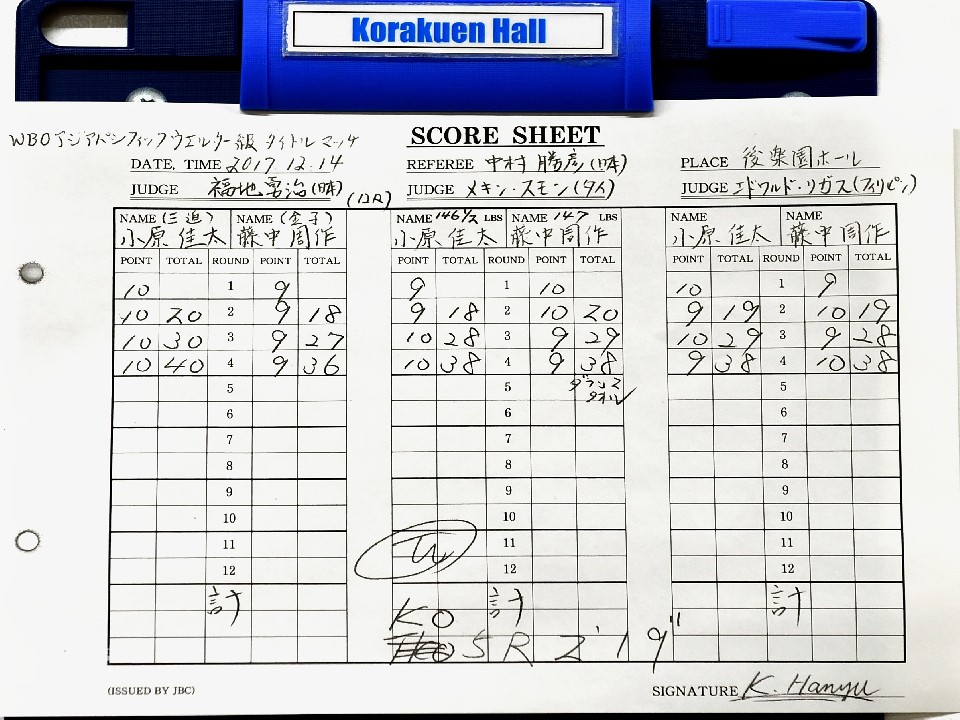 Korakuen Hall
WBOアジアパシフィックウエルター級 タイトルマッチ
SCORE SHEET
DATE, TIME 2017 12.14 REFEREE 中村 勝彦(日本) PLACE 後楽園ホール
JUDGE 福地勇治(日本) (12R) JUDGE メキン・スモン(タイ) JUDGE エドワルド・リガス(フィリピン)
NAME (三迫) NAME (金子) NAME 146 1/2 LBS NAME 147 LBS NAME NAME
小原 佳太 藤中 周作 小原 佳太 藤中周作 小原 佳太 藤中 周作
POINT TOTAL ROUND POINT TOTAL POINT TOTAL ROUND POINT TOTAL POINT TOTAL ROUND POINT TOTAL
10 1 9 9 1 10 10 1 9
10 20 2 9 18 9 18 2 10 20 9 19 2 10 19
10 30 3 9 27 10 28 3 9 29 10 29 3 9 28
10 40 4 9 36 10 38 4 9 38 9 38 4 10 38
5 5 5
6 6 6
7 7 7
8 8 8
9 9 9
10 10 10
11 W 11 11
12 12 12
計 計 計
KO
5R 2'19"
(ISSUED BY JBC) SIGNATURE K. Hanyu